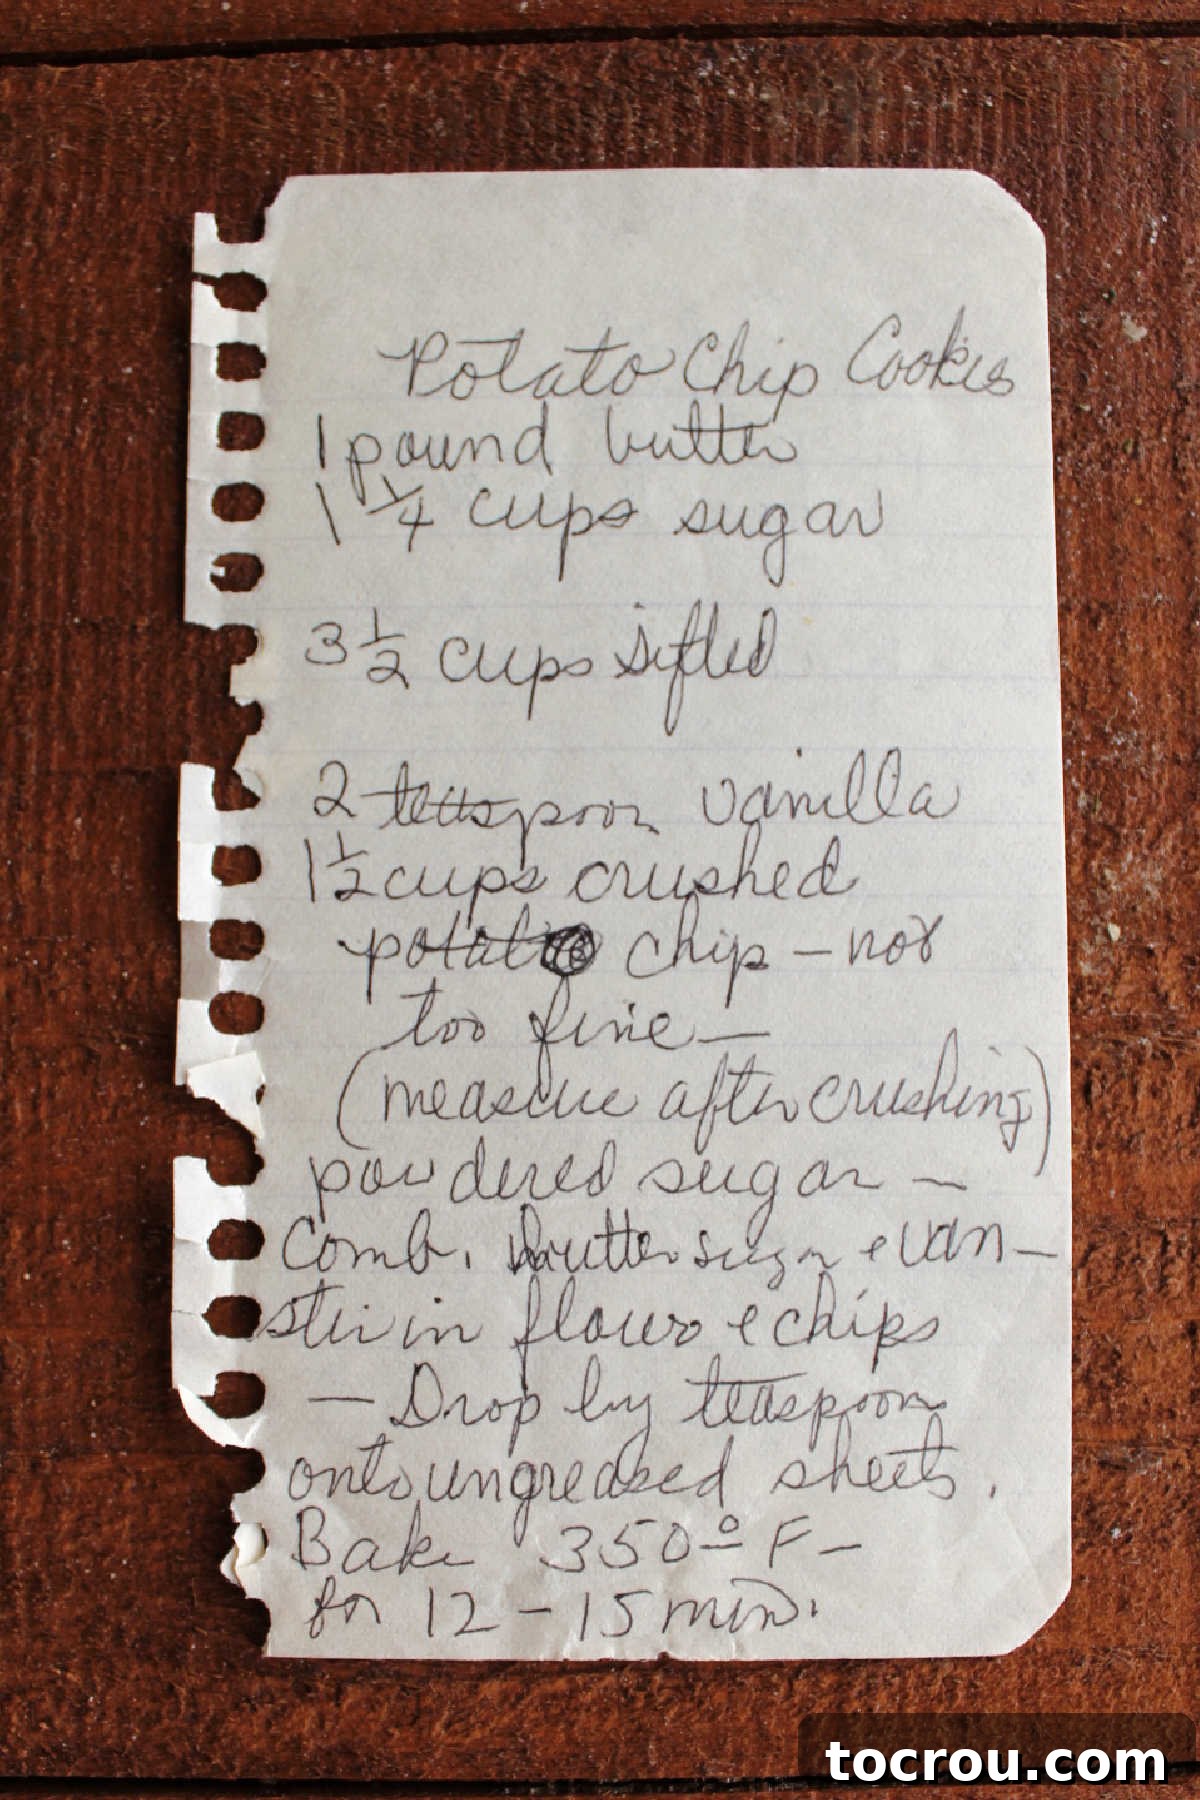 Potato Chip Cookies
1 pound butter
1 1/4 cups sugar
3 1/2 cups sifted
2 teaspoon vanilla
1 1/2 cups crushed
potato chip – not
too fine –
(measure after crushing)
powdered sugar –
Comb. butter sugar & van –
stir in flour & chips
– Drop by teaspoon
onto ungreased sheets.
Bake 350° F –
for 12 – 15 min.
tocrou.com